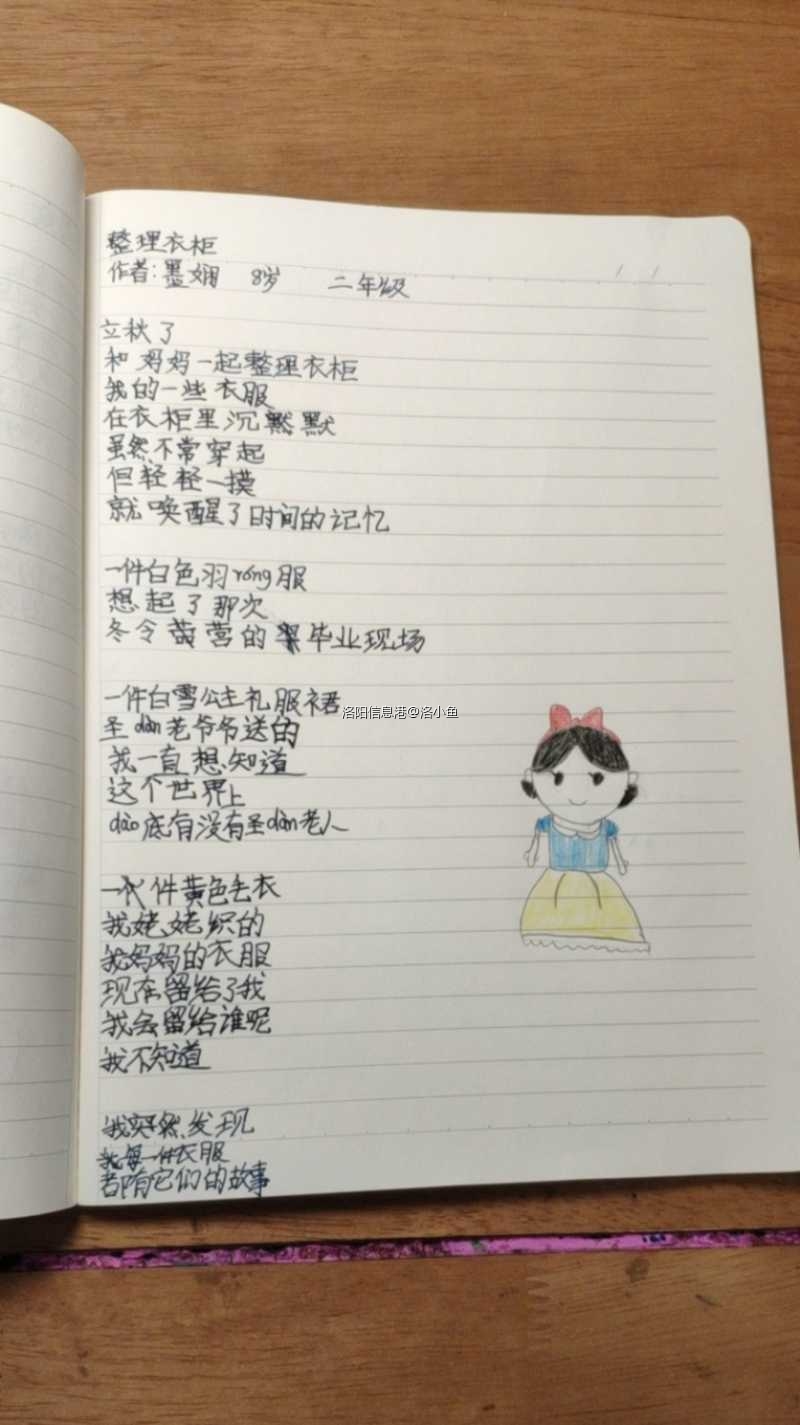 整理衣柜
作者:墨娴 8岁 二年级
立秋了
和妈妈一起整理衣柜
我的一些衣服
在衣柜里沉默
虽然不常穿起
但轻轻一摸
就唤醒了时间的记忆
一件白色羽róng服
想起了那次
冬令营的毕业现场
一件白雪公主礼服裙
圣dàn老爷爷送的
我一直想知道
这个世界上
dào底有没有圣dàn老人
一件黄色毛衣
我姥姥织的
我妈妈的衣服
现在留给了我
我会留给谁呢
我不知道
我突然发现
每一件衣服
都有它们的故事
洛阳信息港@洛小鱼